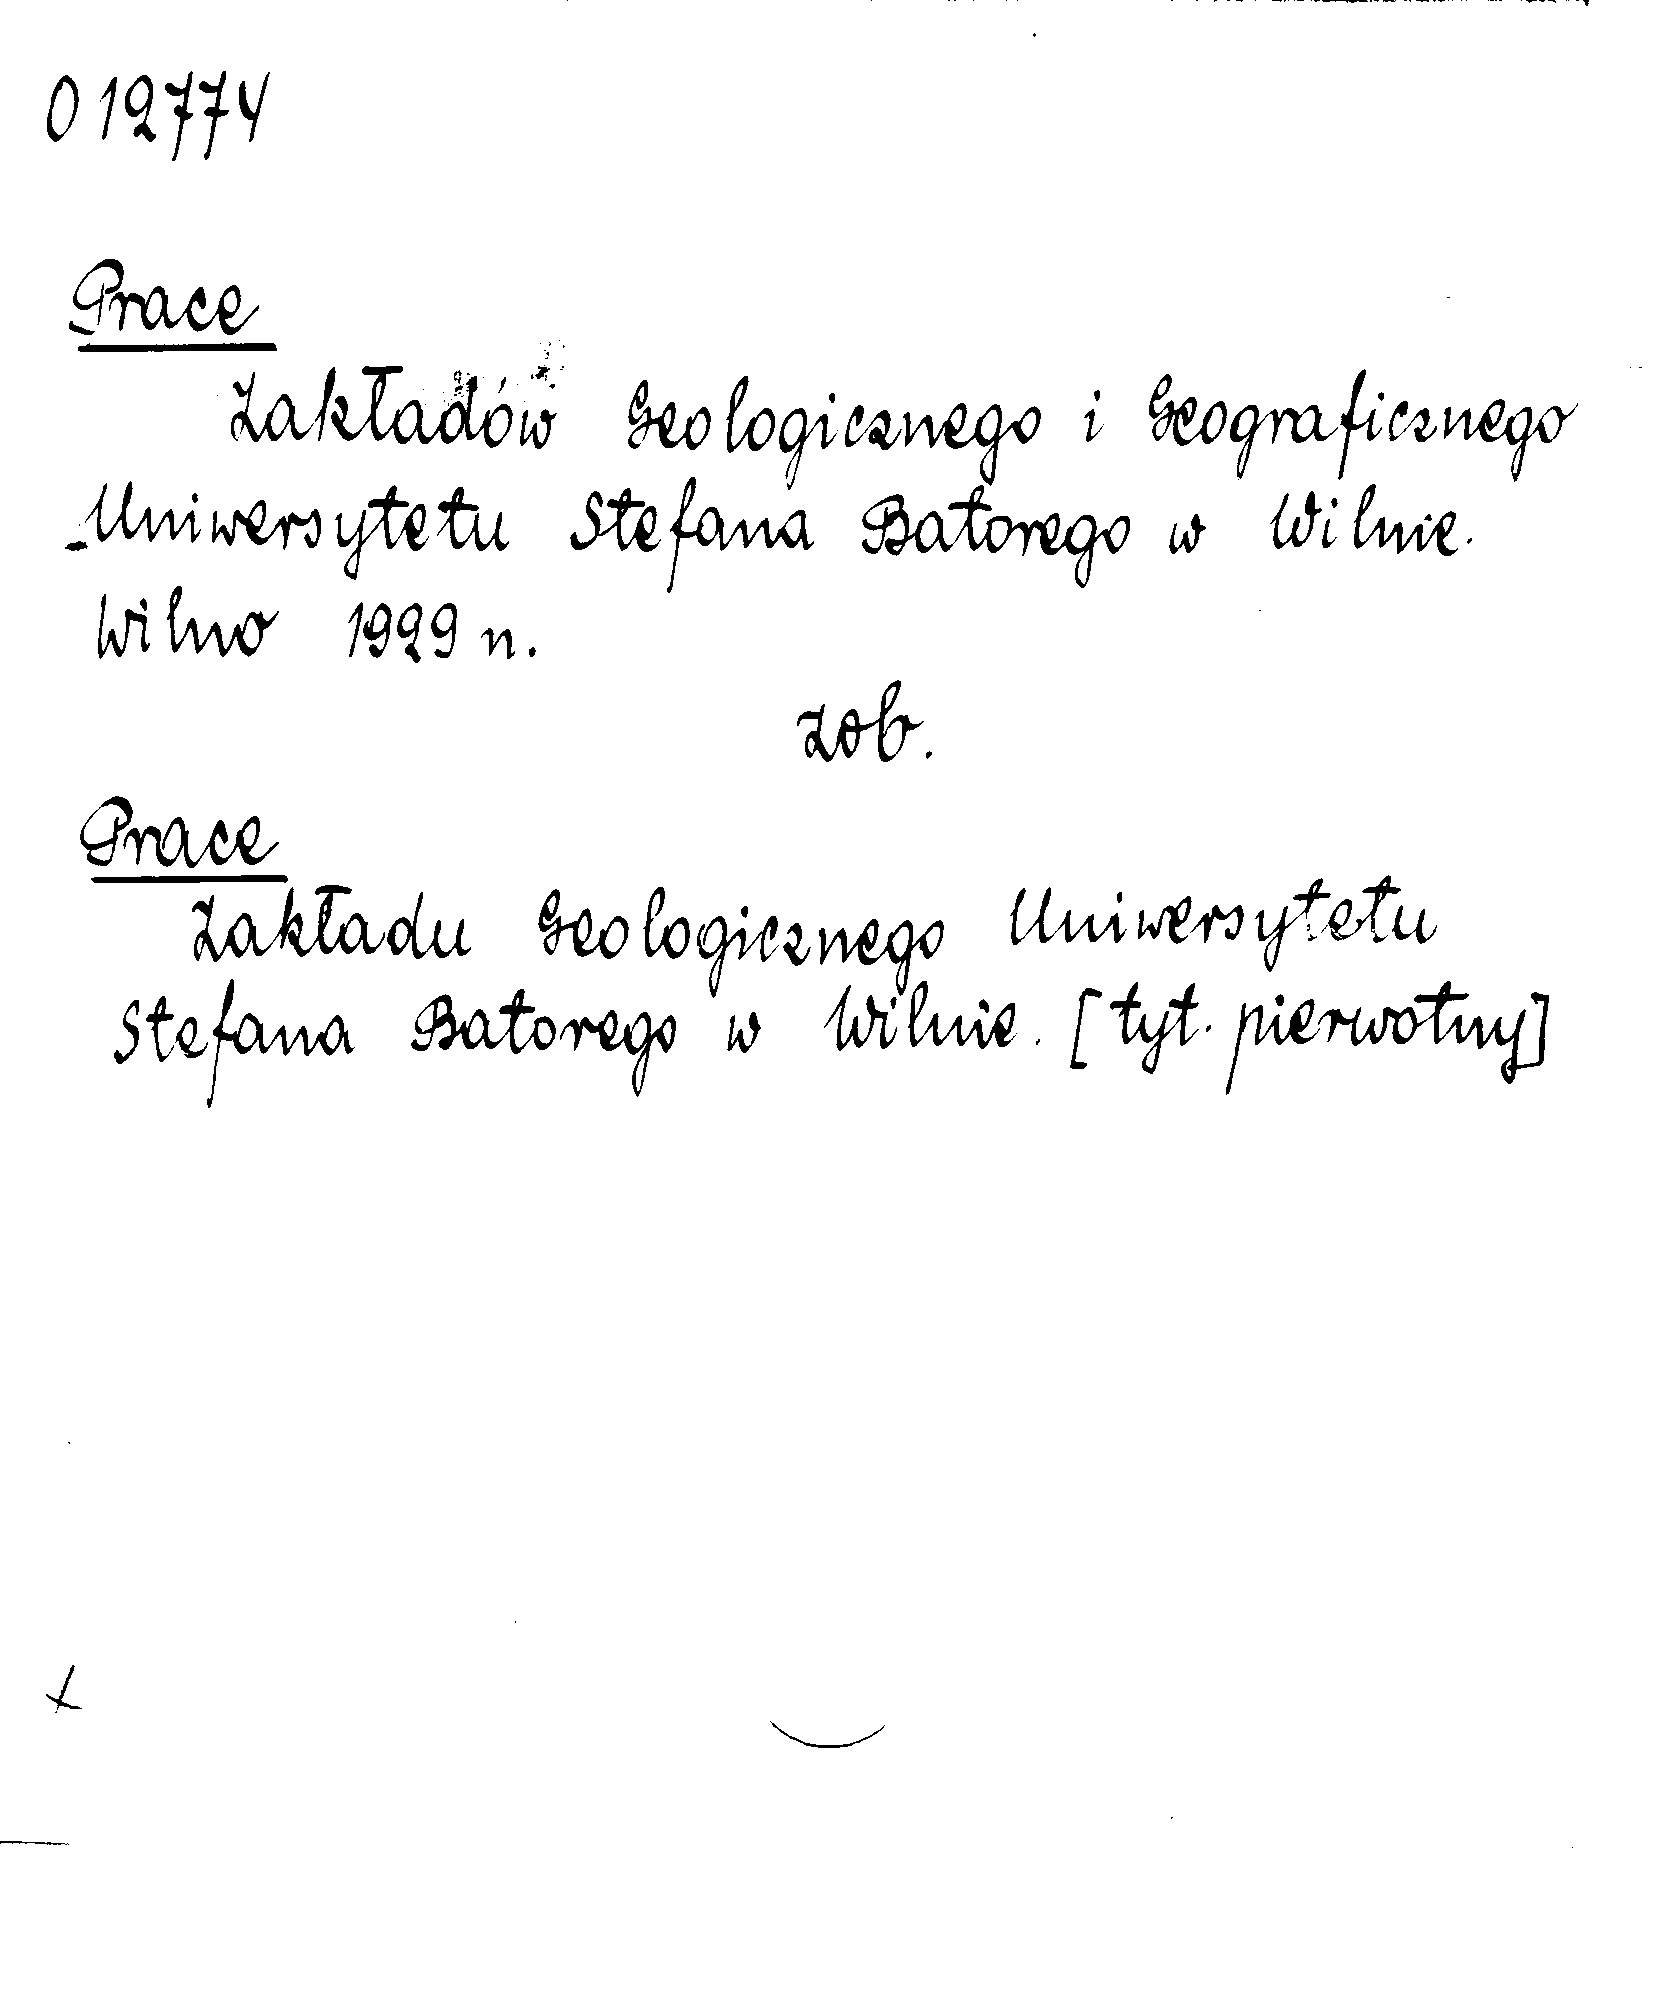 012774
Prace
Zakładów Geologicznego i Geograficznego
Uniwersytetu Stefana Batorego w Wilnie.
Wilno 1929 n.
zob.
Prace
Zakładu Geologicznego Uniwersytetu
Stefana Batorego w Wilnie. [tyt. pierwotny]